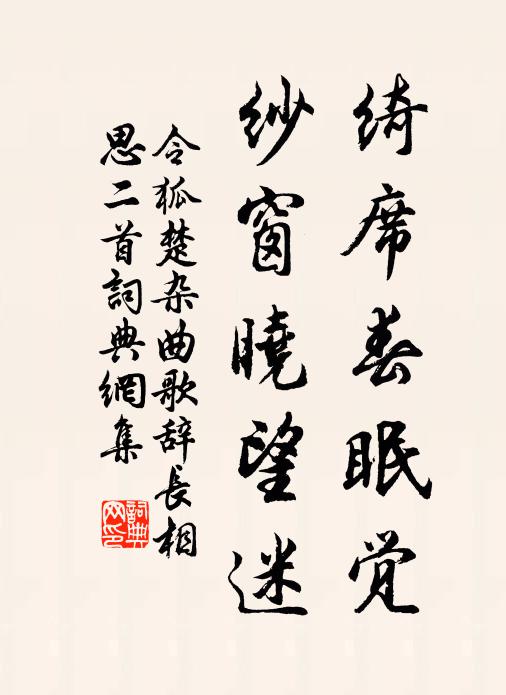 绮席春眠觉
纱窗晓望迷
令狐楚杂曲歌辞长相
思二首詞典網集
詞典网印